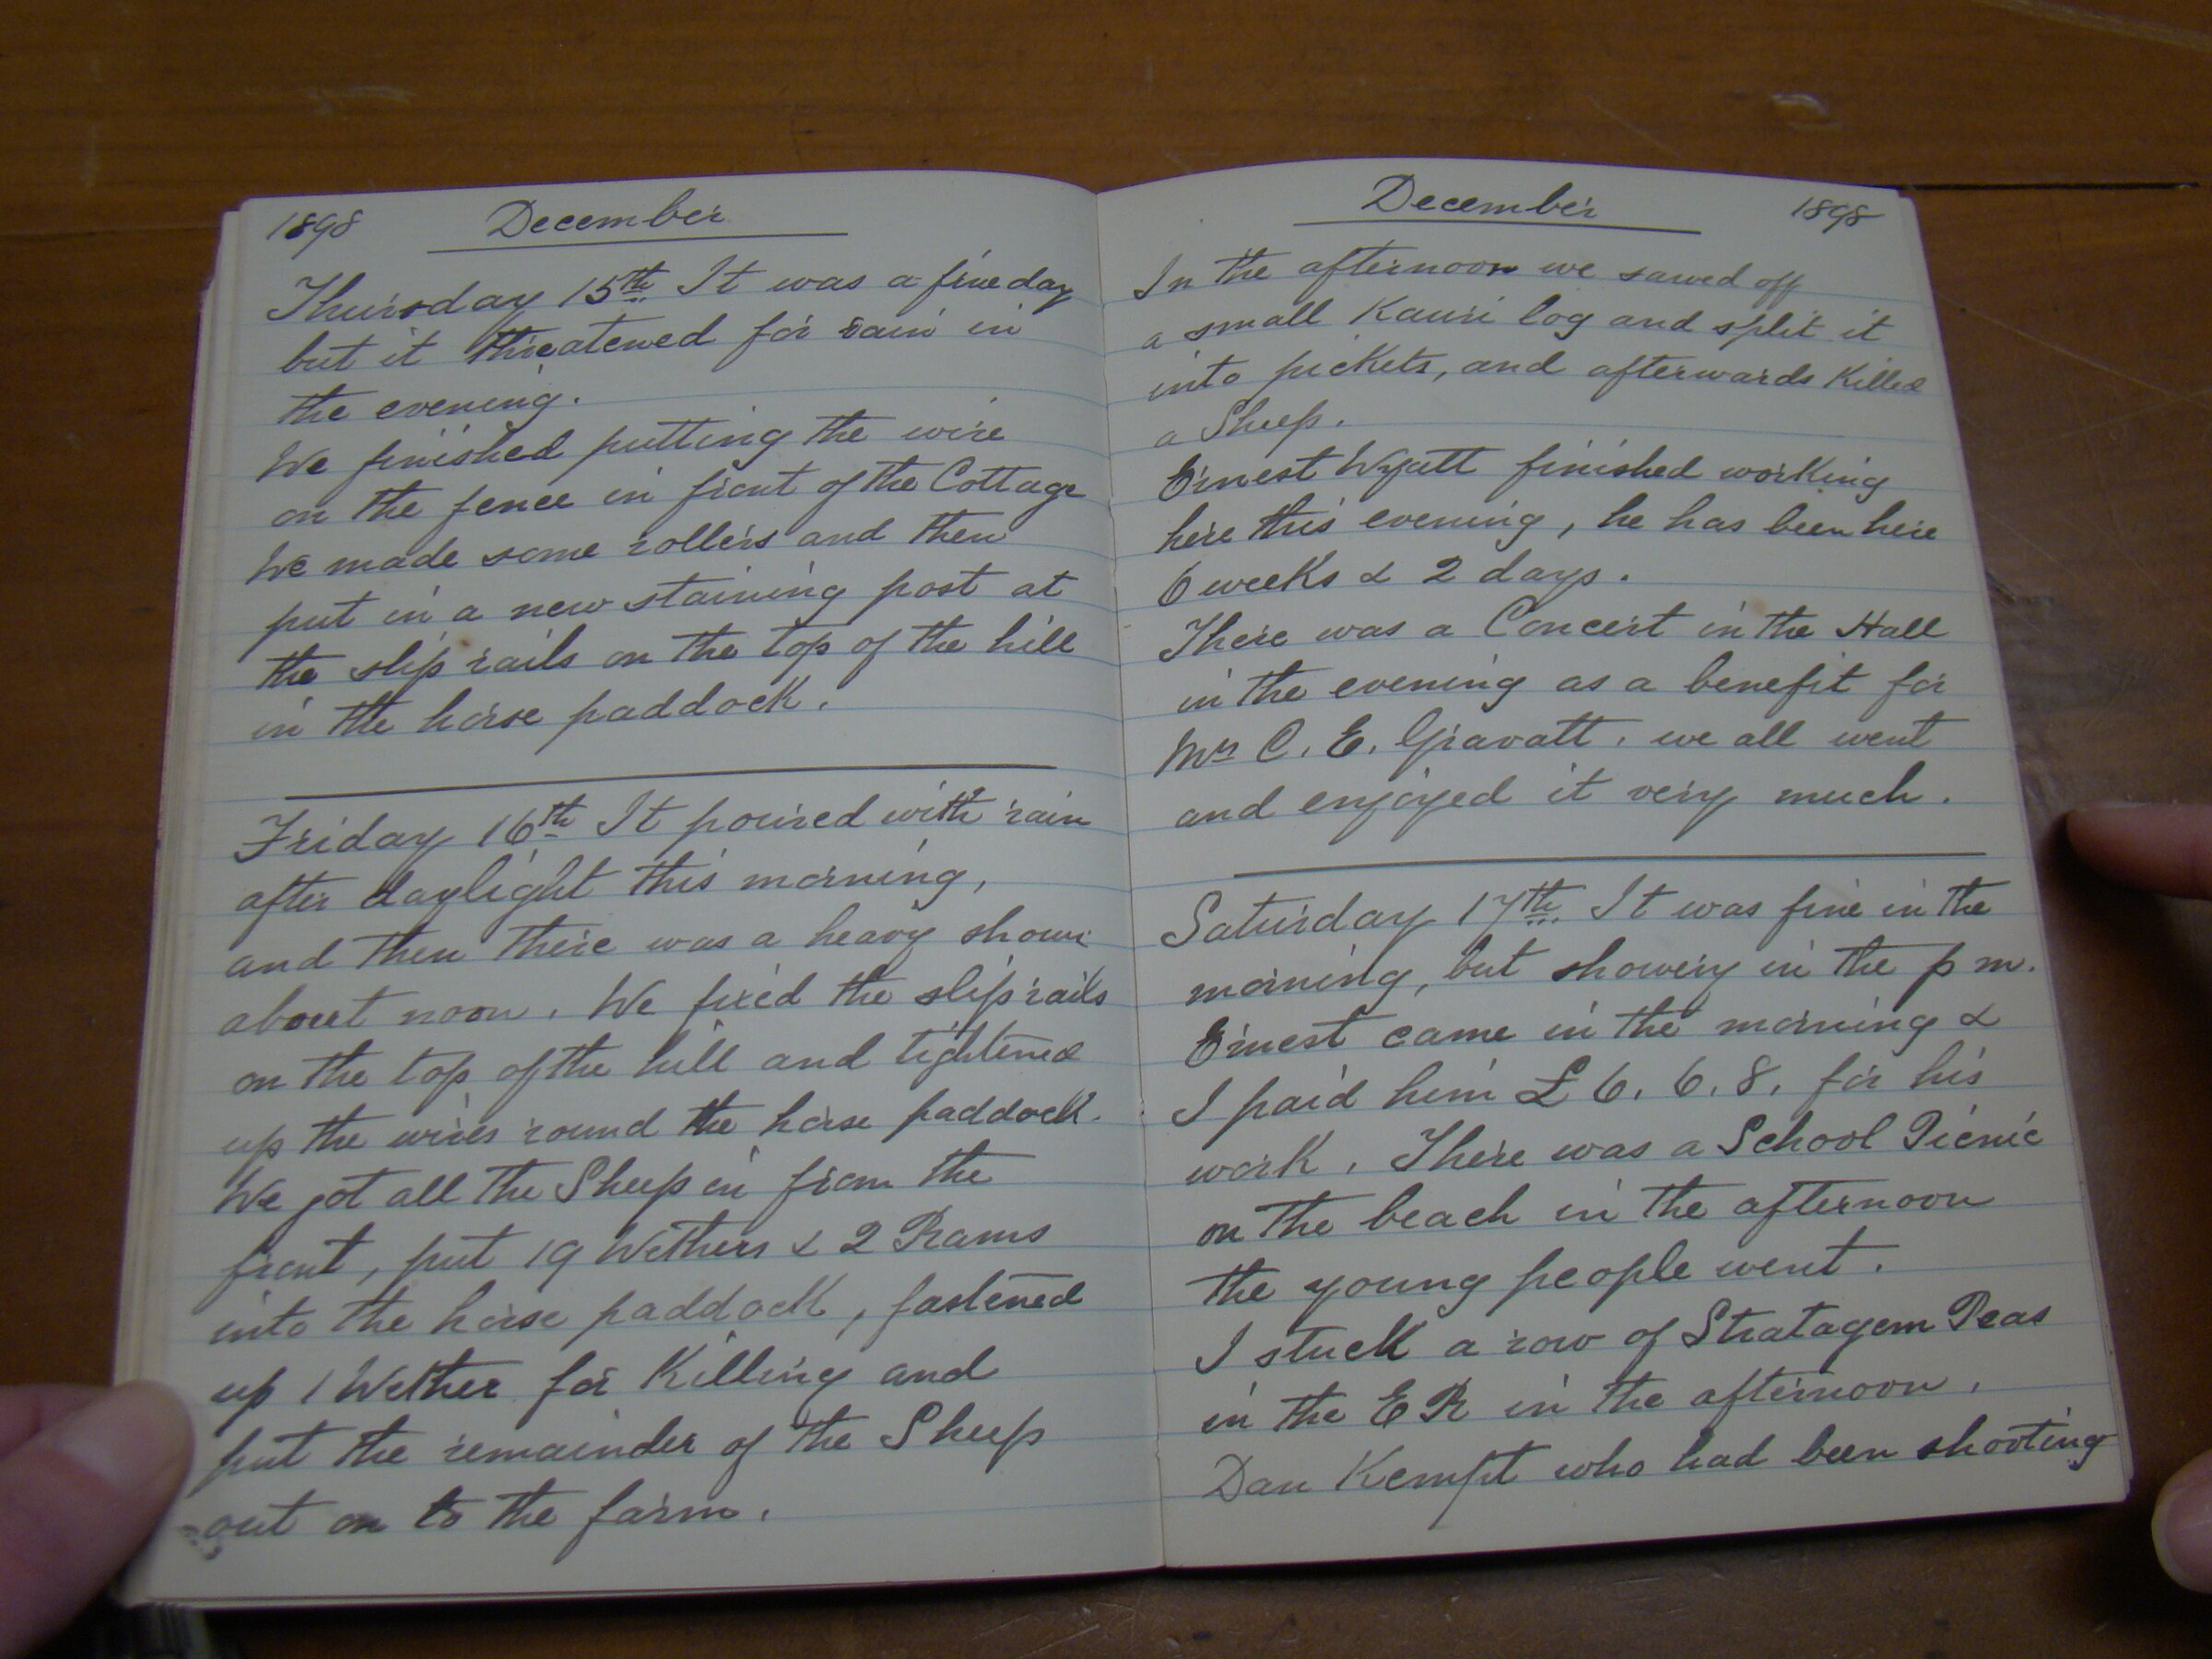 1898 December
Thursday 15th It was a fine day
but it threatened for rain in
the evening.
We finished putting the wire
on the fence in front of the Cottage
We made some rollers and then
put in a new staining post at
the slip rails on the top of the hill
in the horse paddock.
Friday 16th It poured with rain
after daylight this morning,
and then there was a heavy shower
about noon. We fixed the slip rails
on the top of the hill and tightened
up the wires round the horse paddock.
We got all the Sheep in from the
front, put 19 Wethers & 2 Rams
into the horse paddock, fastened
up 1 Wether for Killing and
put the remainder of the Sheep
out on to the farm.
December 1898
In the afternoon we sawed off
a small Kauri log and split it
into pickets, and afterwards Killed
a Sheep.
Ernest Wyatt finished working
here this evening, he has been here
6 weeks & 2 days.
There was a Concert in the Hall
in the evening as a benefit for
Mrs C. E. Gravatt. we all went
and enjoyed it very much.
Saturday 17th It was fine in the
morning, but showery in the p m.
Ernest came in the morning &
I paid him £ 6. 6. 8. for his
work. There was a School Picnic
on the beach in the afternoon
the young people went.
I stuck a row of Stratagem Peas
in the E R in the afternoon.
Dan Kempt who had been shooting